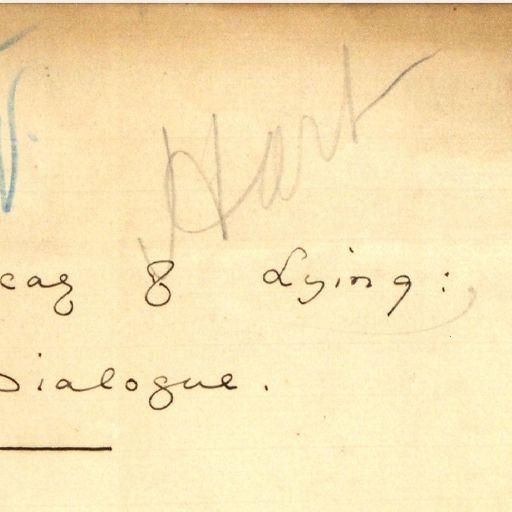 Hart
cay of Lying:
Dialogue.